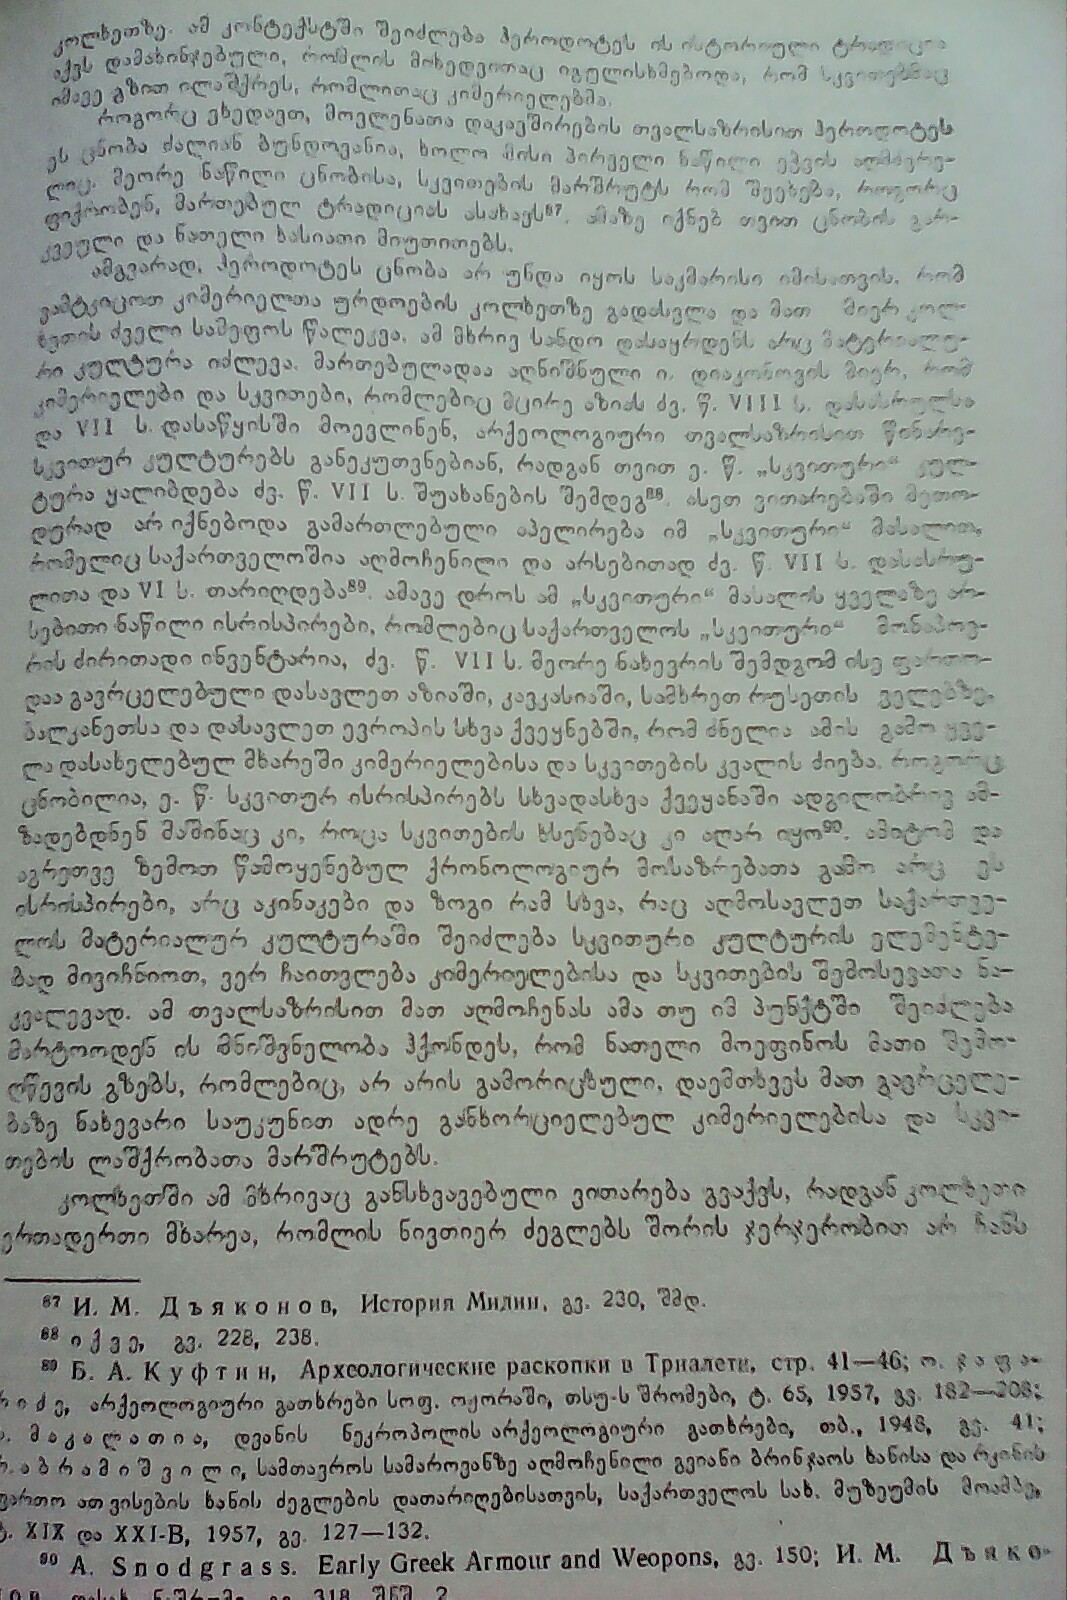 კოლხეთზე. ამ კონტექსტში შეიძლება ჰეროდოტეს ის ისტორიული ტრადიცია
აქვს დამახინჯებული, რომლის მიხედვითაც იგულისხმებოდა, რომ სკვითებმაც
იმავე გზით ილაშქრეს, რომლითაც კიმერიელებმა.
როგორც ვხედავთ, მოვლენათა დაკავშირების თვალსაზრისით ჰეროდოტეს
ეს ცნობა ძალიან ბუნდოვანია, ხოლო მისი პირველი ნაწილი ეჭვის აღმძვრე-
ლიც. მეორე ნაწილი ცნობისა, სკვითების მარშრუტს რომ შეეხება, როგორც
ფიქრობენ, მართებულ ტრადიციას ასახავს⁸⁷. ამაზე იქნებ თვით ცნობის გარ-
კვეული და ნათელი ხასიათი მიუთითებს.
ამგვარად, ჰეროდოტეს ცნობა არ უნდა იყოს საკმარისი იმისათვის, რომ
ვამტკიცოთ კიმერიელთა ურდოების კოლხეთზე გადასვლა და მათ მიერ კოლ-
ხეთის ძველი სამეფოს წალეკვა. ამ მხრივ სანდო დასაყრდენს არც მატერიალუ-
რი კულტურა იძლევა. მართებულადაა აღნიშნული ი. დიაკონოვის მიერ, რომ
კიმერიელები და სკვითები, რომლებიც მცირე აზიას ძვ. წ. VIII ს. დასასრულსა
და VII ს. დასაწყისში მოევლინენ, არქეოლოგიური თვალსაზრისით წინარე-
სკვითურ კულტურებს განეკუთვნებიან, რადგან თვით ე. წ. „სკვითური“ კულ-
ტურა ყალიბდება ძვ. წ. VII ს. შუახანების შემდეგ⁸⁸. ისეთ ვითარებაში მეთო-
დურად არ იქნებოდა გამართლებული აპელირება იმ „სკვითური“ მასალით,
რომელიც საქართველოშია აღმოჩენილი და არსებითად ძვ. წ. VII ს. დასასრუ-
ლითა და VI ს. თარიღდება⁸⁹. ამავე დროს ამ „სკვითური“ მასალის ყველაზე არ-
სებითი ნაწილი ისრისპირები, რომლებიც საქართველოს „სკვითური“ მონაპოვ-
რის ძირითადი ინვენტარია, ძვ. წ. VII ს. მეორე ნახევრის შემდგომ ისე ფართო-
დაა გავრცელებული დასავლეთ აზიაში, კავკასიაში, სამხრეთ რუსეთის ველებზე,
ბალკანეთსა და დასავლეთ ევროპის სხვა ქვეყნებში, რომ ძნელია ამის გამო ყვე-
ლა დასახელებულ მხარეში კიმერიელებისა და სკვითების კვალის ძიება. როგორც
ცნობილია, ე. წ. სკვითურ ისრისპირებს სხვადასხვა ქვეყანაში ადგილობრივ ამ-
ზადებდნენ მაშინაც კი, როცა სკვითების ხსენებაც კი აღარ იყო⁹⁰. ამიტომ და
აგრეთვე ზემოთ წამოყენებულ ქრონოლოგიურ მოსაზრებათა გამო არც ეს
ისრისპირები, არც აკინაკები და ზოგი რამ სხვა, რაც აღმოსავლეთ საქართვე-
ლოს მატერიალურ კულტურაში შეიძლება სკვითური კულტურის ელემენტე-
ბად მივიჩნიოთ, ვერ ჩაითვლება კიმერიელებისა და სკვითების შემოსევათა ნა-
კვალევად. ამ თვალსაზრისით მათ აღმოჩენას ამა თუ იმ პუნქტში შეიძლება
მარტოოდენ ის მნიშვნელობა ჰქონდეს, რომ ნათელი მოეფინოს მათი შემო-
ღწევის გზებს, რომლებიც, არ არის გამორიცხული, დაემთხვეს მათ გავრცელე-
ბაზე ნახევარი საუკუნით ადრე განხორციელებულ კიმერიელებისა და სკვი-
თების ლაშქრობათა მარშრუტებს.
კოლხეთში ამ მხრივაც განსხვავებული ვითარება გვაქვს, რადგან კოლხეთი
ერთადერთი მხარეა, რომლის ნივთიერ ძეგლებს შორის ჯერჯერობით არ ჩანს
⁸⁷ И. М. Дъяконов, История Мидии, გვ. 230, შმდ.
⁸⁸ იქვე, გვ. 228, 238.
⁸⁹ Б. А. Куфтин, Археологические раскопки в Триалети, стр. 41—46; ო. ჯაფა-
რიძე, არქეოლოგიური გათხრები სოფ. ოჟორაში, თსუ-ს შრომები, ტ. 65, 1957, გვ. 182—208;
მაკალათია, დვანის ნეკროპოლის არქეოლოგიური გათხრები, თბ., 1948, გვ. 41;
რ. აბრამიშვილი, სამთავროს სამაროვანზე აღმოჩენილი გვიანი ბრინჯაოს ხანისა და რკინის
ფართო ათვისების ხანის ძეგლების დათარიღებისათვის, საქართველოს სახ. მუზეუმის მოამბე,
ტ. XIX და XXI-B, 1957, გვ. 127—132.
⁹⁰ A. Snodgrass. Early Greek Armour and Weopons, გვ. 150; И. М. Дъяко-
нов, დასახ. ნაშრომი, გვ. 318, შნშ. 2